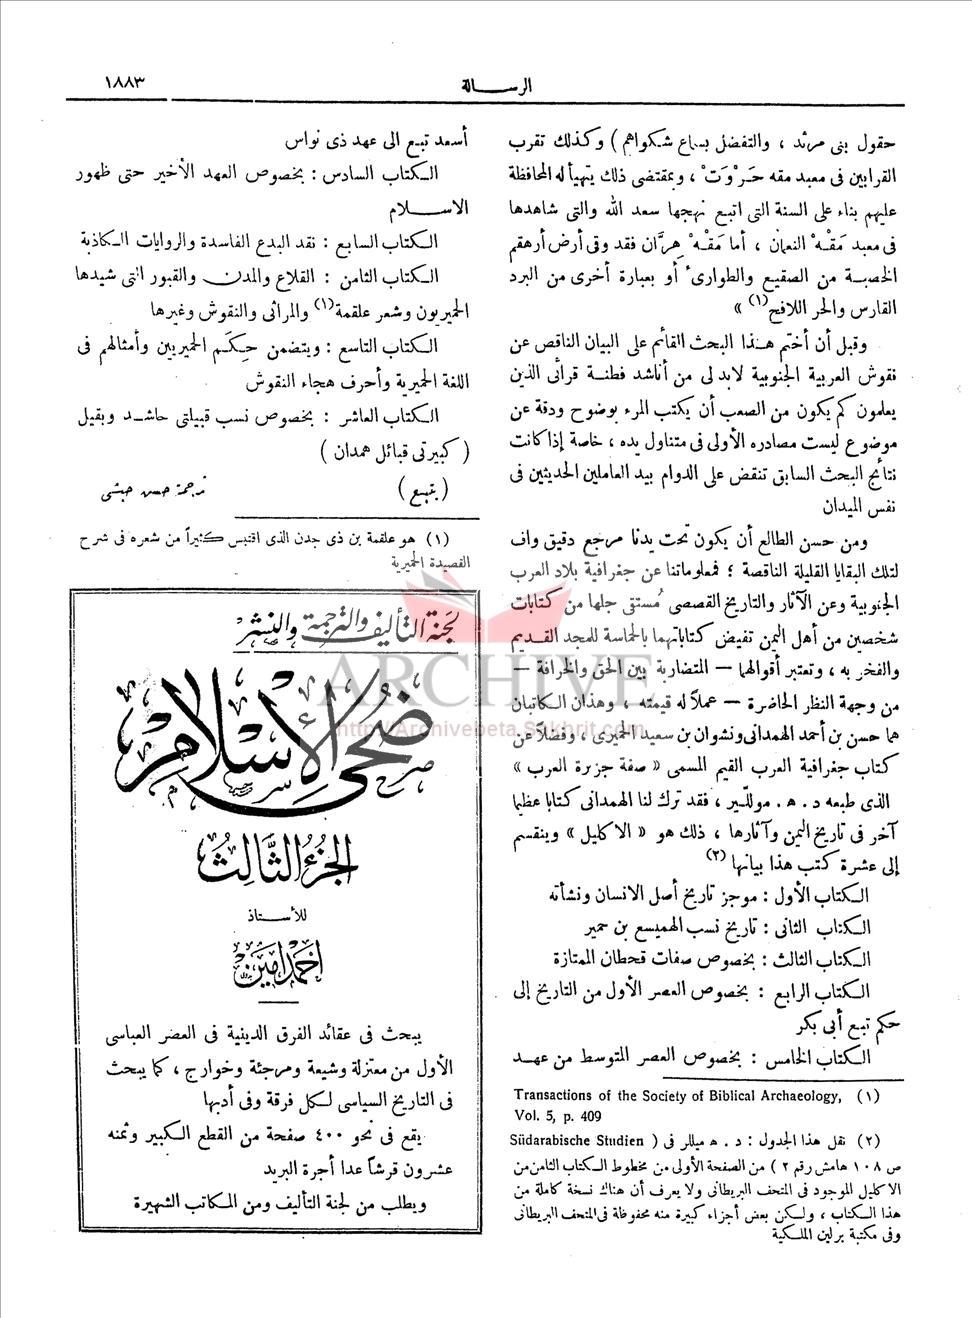 ١٨٨٣
الرسالة
حقول بنى مرثد ، والتفضل بسماع شكواهم ) وكذلك تقرب
القرابين فى معبد مقه حَرْوَتْ ، وبمقتضى ذلك يتهيأ له المحافظة
عليهم بناء على السنة التى اتبع نهجها سعد الله والتى شاهدها
فى معبد مَقْهْ النعمان ، أما مَقْهْ هِرَّان فقد وقى أرض أرهقم
الخصبة من الصقيع والطوارئ أو بعبارة أخرى من البرد
القارس والحر اللافح(١) »
وقبل أن أختم هذا البحث القائم على البيان الناقص عن
نقوش العربية الجنوبية لابد لى من أناشد فطنة قرائى الذين
يعلمون كم يكون من الصعب أن يكتب المرء بوضوح ودقة عن
موضوع ليست مصادره الأولى فى متناول يده ، خاصة إذا كانت
نتائج البحث السابق تنقض على الدوام بيد العاملين الحديثين فى
نفس الميدان
ومن حسن الطالع أن يكون تحت يدنا مرجع دقيق واف
لتلك البقايا القليلة الناقصة ؛ فمعلوماتنا عن جغرافية بلاد العرب
الجنوبية وعن الآثار والتاريخ القصصى مُستقى جلها من كتابات
شخصين من أهل اليمن تفيض كتاباتهما بالحماسة للمجد القديم
والفخر به ، وتعتبر أقوالهما — المتضاربة بين الحق والخرافة —
من وجهة النظر الحاضرة — عملاً له قيمته ، وهذان الكاتبان
هما حسن بن أحمد الهمدانى ونشوان بن سعيد الحميرى ، وفضلاً عن
كتاب جغرافية العرب القيم المسمى « صفة جزيرة العرب »
الذى طبعه د . ه . موللير ، فقد ترك لنا الهمدانى كتابا عظيما
آخر فى تاريخ اليمن وآثارها ، ذلك هو « الاكليل » وينقسم
إلى عشرة كتب هذا بيانها(٢)
الكتاب الأول : موجز تاريخ أصل الانسان ونشأته
الكتاب الثانى : تاريخ نسب الهميسع بن حمير
الكتاب الثالث : بخصوص صفات قحطان الممتازة
الكتاب الرابع : بخصوص العصر الأول من التاريخ إلى
حكم تبع أبى بكر
الكتاب الخامس : بخصوص العصر المتوسط من عهد
(١) Transactions of the Society of Biblical Archaeology,
Vol. 5, p. 409
(٢) نقل هذا الجدول : د . ه ميللر فى ( Südarabische Studien
ص ١٠٨ هامش رقم ٢ ) من الصفحة الأولى من مخطوط الكتاب الثامن من
الاكليل الموجود فى المتحف البريطانى ولا يعرف أن هناك نسخة كاملة من
هذا الكتاب ، ولكن بعض أجزاء كبيرة منه محفوظة فى المتحف البريطانى
وفى مكتبة برلين الملكية
أسعد تبع الى عهد ذى نواس
الكتاب السادس : بخصوص العهد الأخير حتى ظهور
الاسلام
الكتاب السابع : نقد البدع الفاسدة والروايات الكاذبة
الكتاب الثامن : القلاع والمدن والقبور التى شيدها
الحميريون وشعر علقمة(١) والمراثى والنقوش وغيرها
الكتاب التاسع : ويتضمن حِكَم الحميريين وأمثالهم فى
اللغة الحميرية وأحرف هجاء النقوش
الكتاب العاشر : بخصوص نسب قبيلتى حاشد وبقيل
( كبيرتى قبائل همدان )
( يتبع )
ترجمة حسن حبشى
(١) هو علقمة بن ذى جدن الذى اقتبس كثيراً من شعره فى شرح
القصيدة الحميرية
لجنة التأليف والترجمة والنشر
ضحى الإسلام
الجزء الثالث
للأستاذ
احمد امين
يبحث فى عقائد الفرق الدينية فى العصر العباسى
الأول من معتزلة وشيعة ومرجئة وخوارج ، كما يبحث
فى التاريخ السياسى لكل فرقة وفى أدبها
يقع فى نحو ٤٠٠ صفحة من القطع الكبير وثمنه
عشرون قرشاً عدا أجرة البريد
ويطلب من لجنة التأليف ومن المكاتب الشهيرة
ARCHIVE
http://Archivebeta.Sakhrit.com